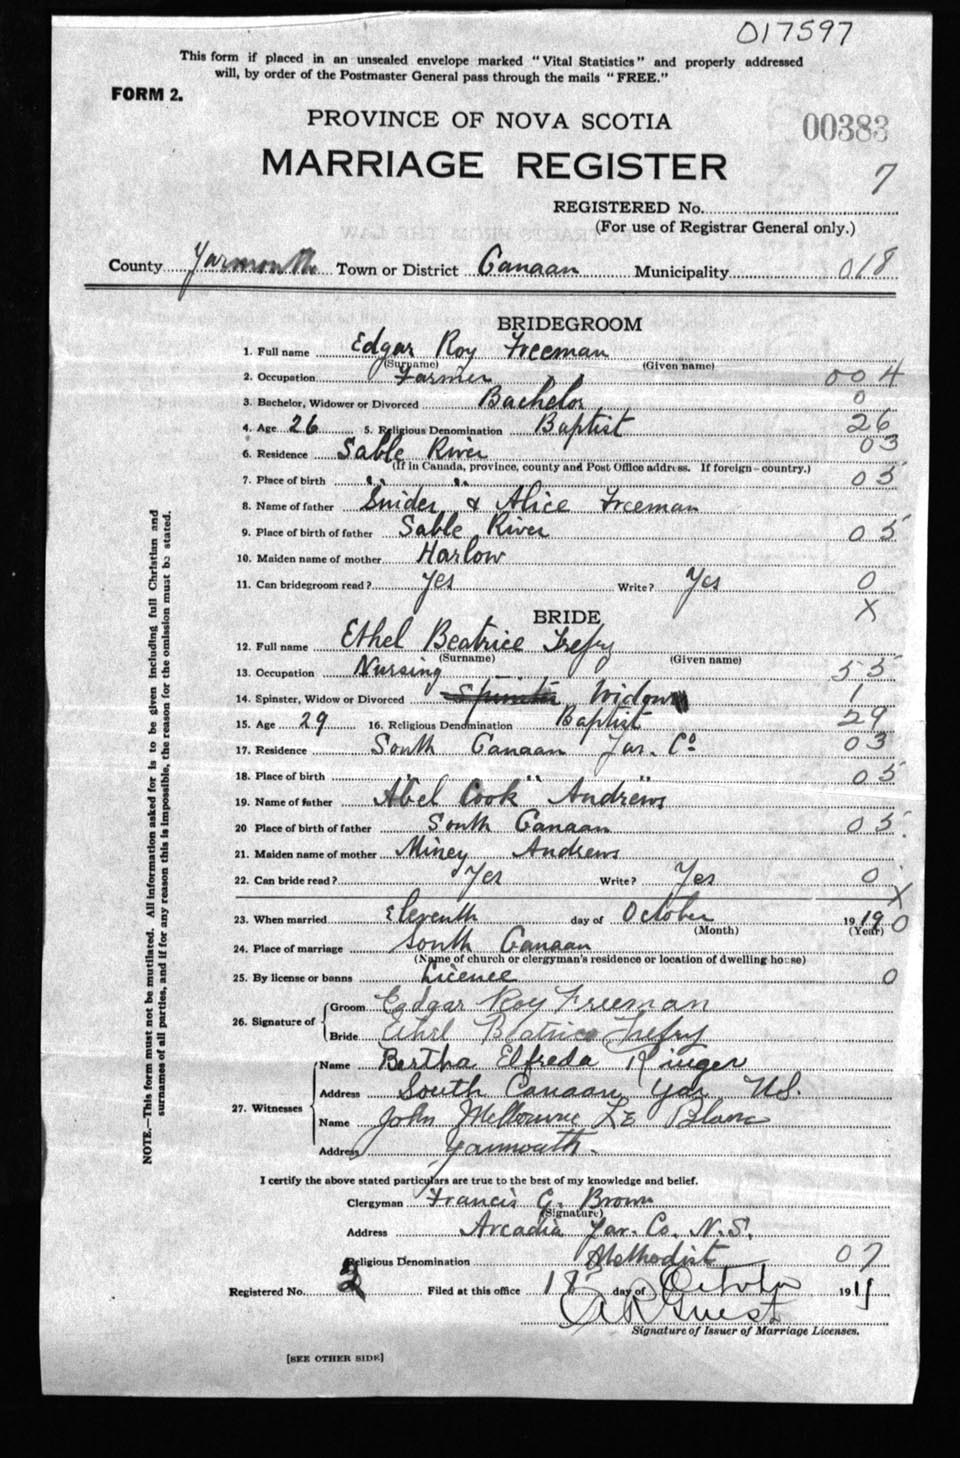 017597
This form if placed in an unsealed envelope marked "Vital Statistics" and properly addressed
will, by order of the Postmaster General pass through the mails "FREE."
FORM 2.
PROVINCE OF NOVA SCOTIA
00383
MARRIAGE REGISTER
7
REGISTERED No.
(For use of Registrar General only.)
County Yarmouth Town or District Canaan Municipality 018
BRIDEGROOM
1. Full name Edgar Roy Freeman
(Surname) (Given name)
2. Occupation Farmer 004
3. Bachelor, Widower or Divorced Bachelor 0
4. Age 26 5. Religious Denomination Baptist 26
6. Residence Sable River 03
(If in Canada, province, county and Post Office address. If foreign-country.)
7. Place of birth " " 05
8. Name of father Snider & Alice Freeman
9. Place of birth of father Sable River 05
10. Maiden name of mother Harlow
11. Can bridegroom read? Yes Write? Yes 0
X
BRIDE
12. Full name Ethel Beatrice Trefry
(Surname) (Given name)
13. Occupation Nursing 55
14. Spinster, Widow or Divorced Spinster Widow 1
15. Age 29 16. Religious Denomination Baptist 29
17. Residence South Canaan Yar. Co 03
18. Place of birth " " 05
19. Name of father Abel Cook Andrews
20 Place of birth of father South Canaan 05
21. Maiden name of mother Miney Andrews
22. Can bride read? Yes Write? Yes 0
X
23. When married Eleventh day of October 1919 0
(Month) (Year)
24. Place of marriage South Canaan
(Name of church or clergyman's residence or location of dwelling house)
25. By license or banns Licence 0
26. Signature of Groom Edgar Roy Freeman
Bride Ethel Beatrice Trefry
27. Witnesses Name Bertha Elfreda Ringer
Address South Canaan Yar N.S.
Name John Melbourne Le Blanc
Address Yarmouth.
I certify the above stated particulars are true to the best of my knowledge and belief.
Clergyman Francis G. Brown
(Signature)
Address Arcadia Yar. Co. N.S.
Religious Denomination Methodist 07
Registered No. 2 Filed at this office 18 day of October 1919
Guest
Signature of Issuer of Marriage Licenses.
[SEE OTHER SIDE]
NOTE.—This form must not be mutilated. All information asked for is to be given including full Christian and
surnames of all parties, and if for any reason this is impossible, the reason for the omission must be stated.